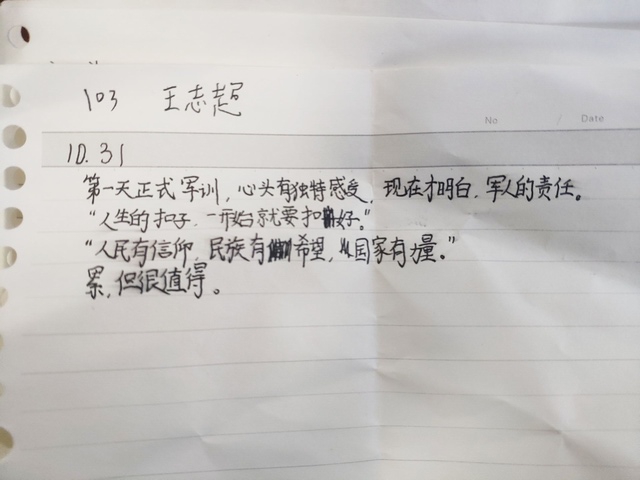 103 王志超
No / Date
10.31
第一天正式军训，心头有独特感受，现在才明白，军人的责任。
“人生的扣子，一开始就要扣好。”
“人民有信仰，民族有希望，国家有力量。”
累，但很值得。